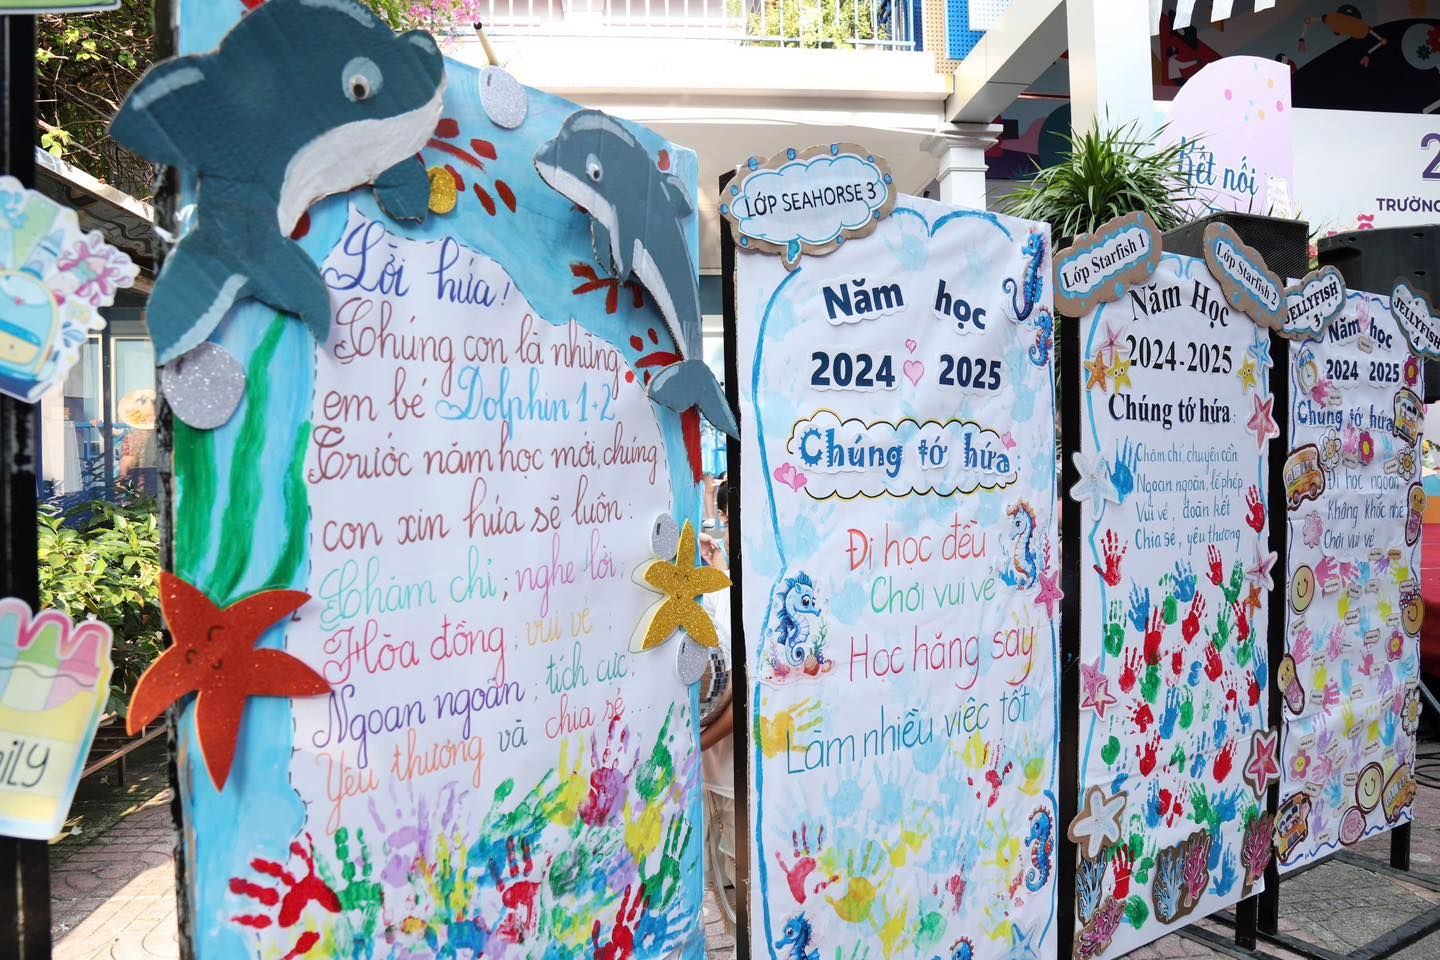 Lời hứa!
Chúng con là những
em bé Dolphin 1+2
Trước năm học mới, chúng
con xin hứa sẽ luôn:
Chăm chỉ; nghe lời;
Hòa đồng; vui vẻ;
Ngoan ngoãn; tích cực;
Yêu thương và chia sẻ...
LỚP SEAHORSE 3
Năm học
2024 2025
Chúng tớ hứa
Đi học đều
Chơi vui vẻ
Học hăng say
Làm nhiều việc tốt
Lớp Starfish 1
Lớp Starfish 2
Năm Học
2024-2025
Chúng tớ hứa:
Chăm chỉ, chuyên cần
Ngoan ngoãn, lễ phép
Vui vẻ, đoàn kết
Chia sẻ, yêu thương
JELLYFISH
3
JELLYFISH
4
Năm học
2024 2025
Chúng tớ hứa
Đi học ngoan
Không khóc nhè
Chơi vui vẻ
Kết nối
2
TRƯỜNG